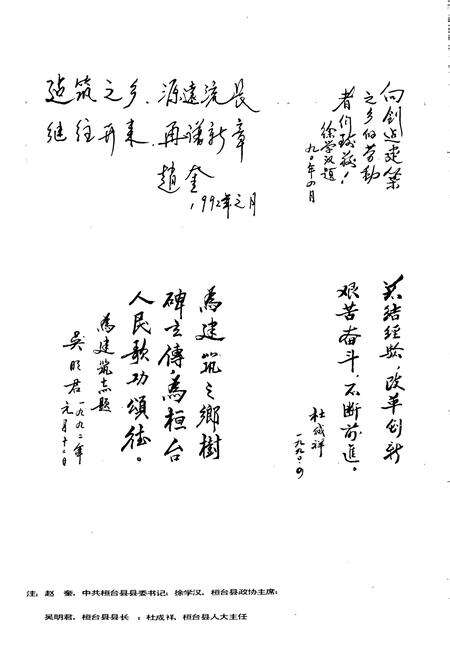 建筑之乡，源远流长
继往开来，再谱新章
趙奎
1992年元月
向创造建築
之乡的劳动
者们致敬！
徐学汉题
九〇年四月
为建筑之鄉樹
碑立傳，为桓台
人民歌功頌德。
为建筑志题
吴明君
一九九二年
元月十二日
总结经验，改革创新
艰苦奋斗，不断前進。
杜成祥
一九九〇.
注：赵　奎，中共桓台县县委书记；徐学汉，桓台县政协主席；
吴明君，桓台县县长　；杜成祥，桓台县人大主任